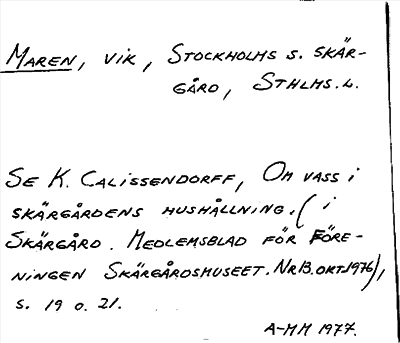 MAREN, VIK, STOCKHOLMS S. SKÄR-
GÅRD, STHLMS. L.
SE K. CALISSENDORFF, OM VASS I
SKÄRGÅRDENS HUSHÅLLNING. (I
SKÄRGÅRD. MEDLEMSBLAD FÖR FÖRE-
NINGEN SKÄRGÅRDSMUSEET. NR 13. OKT. 1976),
S. 19 O. 21.
A-MM 1977.